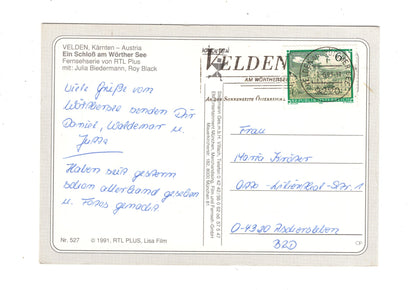 VELDEN, Kärnten – Austria
Ein Schloß am Wörther See
Fernsehserie von RTL Plus
mit: Julia Biedermann, Roy Black
Viele Grüße vom
Wörthersee senden Dir
Daniel, Waldemar u.
Jutta
Haben seit gestern
schon allerhand gesehen
u. Fotos gemacht.
Nr. 527 © 1991, RTL PLUS, Lisa Film
VELDEN
AM WÖRTHERSEE
Frau
Maria
Otto-Lilienthal-Str. 1
O-4320 Aschersleben
BRD